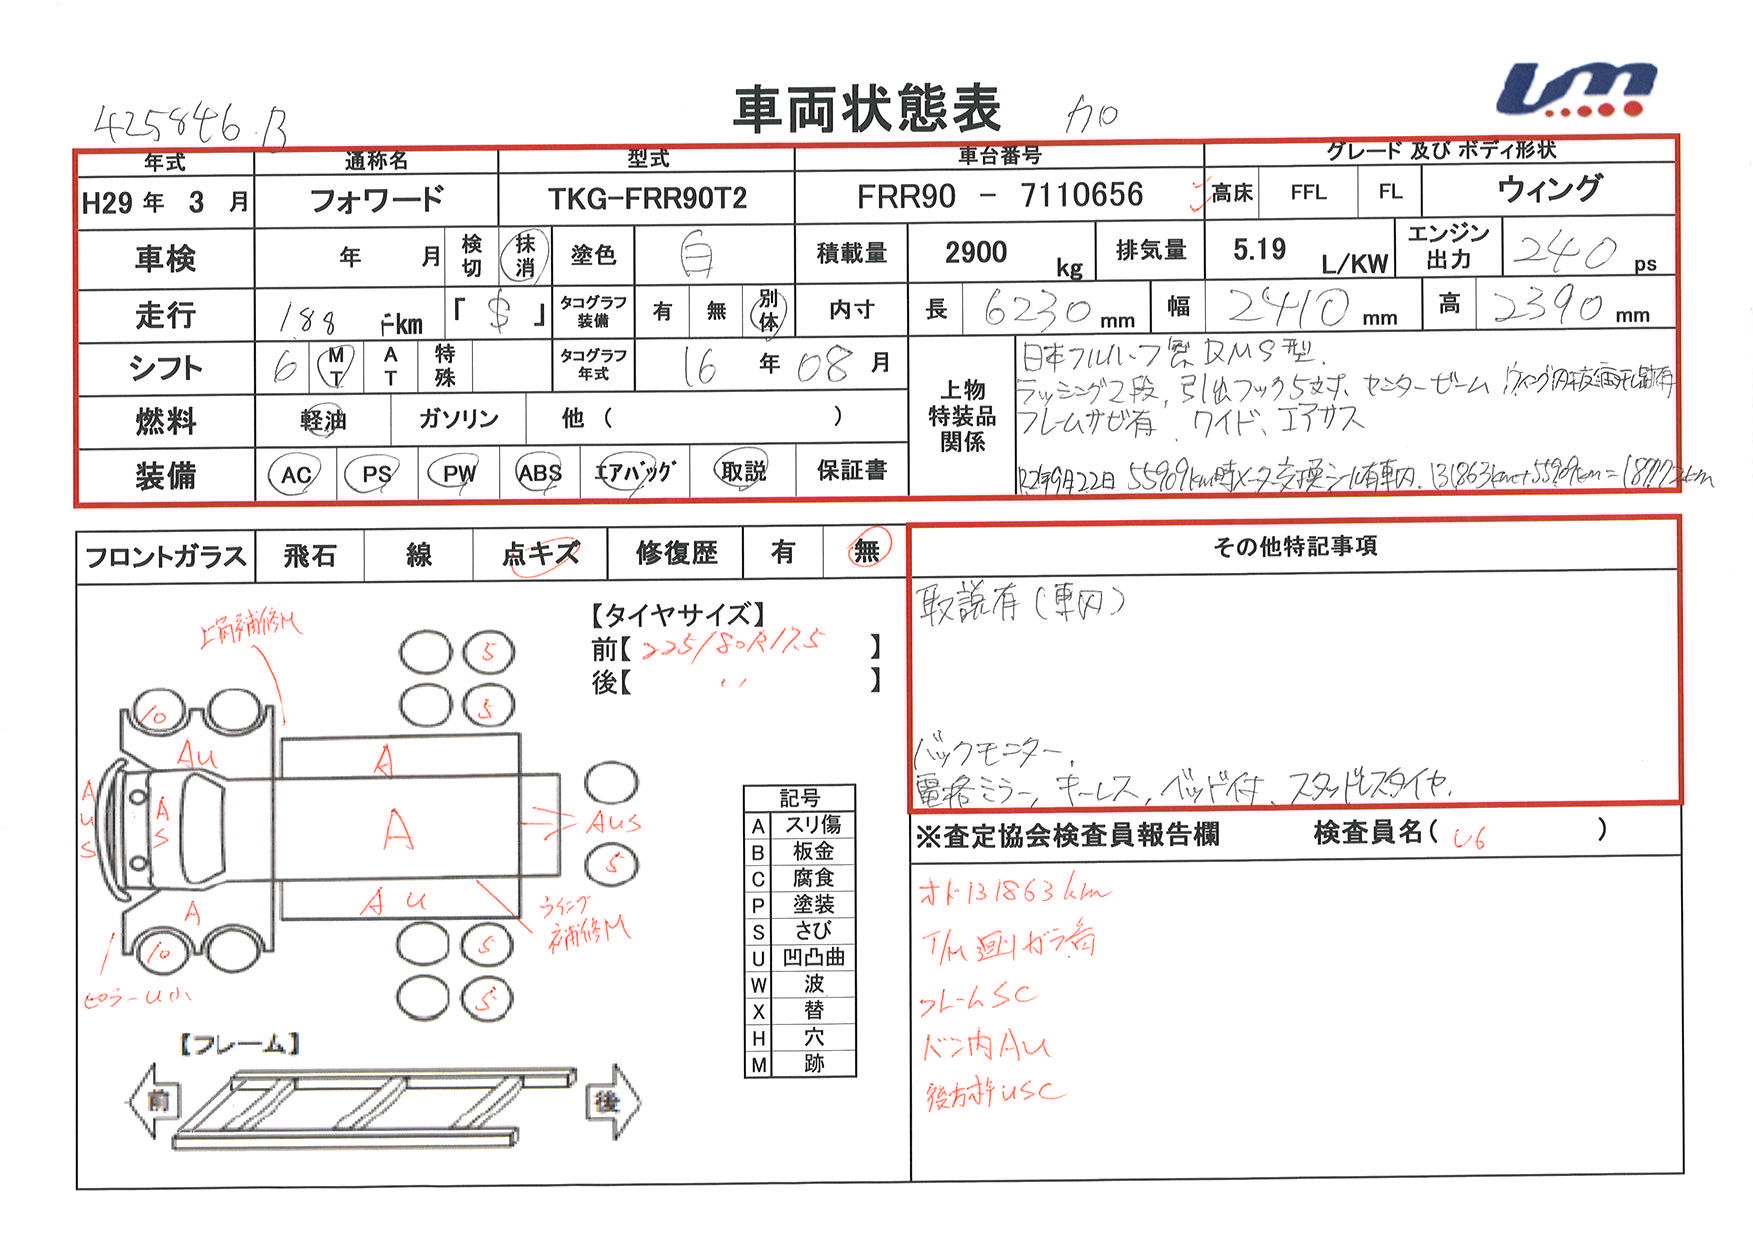 425846.B
車両状態表
カロ
年式 通称名 型式 車台番号 グレード 及び ボディ形状
H29 年 3 月 フォワード TKG-FRR90T2 FRR90 - 7110656 高床 FFL FL ウィング
車検 年 月 検切 抹消 塗色 白 積載量 2900 kg 排気量 5.19 L/KW エンジン出力 240 ps
走行 188 千km 「 $ 」 タコグラフ装備 有 無 別体 内寸 長 6230 mm 幅 2410 mm 高 2390 mm
シフト 6 MT AT 特殊 タコグラフ年式 16 年 08 月
上物特装品関係
日本フルハーフ製 DMS型.
ラッシング2段, 引出フック5対, センタービーム
フレームサビ有 ワイド、エアサス
R2年9月22日 55909km時メーター交換シール有車内. 131863km+55909km=187772km
燃料 軽油 ガソリン 他 ( )
装備 AC PS PW ABS エアバッグ 取説 保証書
フロントガラス 飛石 線 点キズ 修復歴 有 無
その他特記事項
取説有(車内)
バックモニター,
電格ミラー, キーレス, ベッド付、スタッドレスタイヤ.
【タイヤサイズ】
前【 225/80R17.5 】
後【 〃 】
上角補修M
5
5
10
Au
A
A
U
S
A
S
A
AUS
5
A
AU
ウイング
補修M
10
5
5
ピラーU小
記号
A スリ傷
B 板金
C 腐食
P 塗装
S さび
U 凹凸曲
W 波
X 替
H 穴
M 跡
【フレーム】
前
後
※査定協会検査員報告欄 検査員名( U6 )
オド131863km
T/M廻りガラ有
フレームSC
バン内AU
後方枠USC